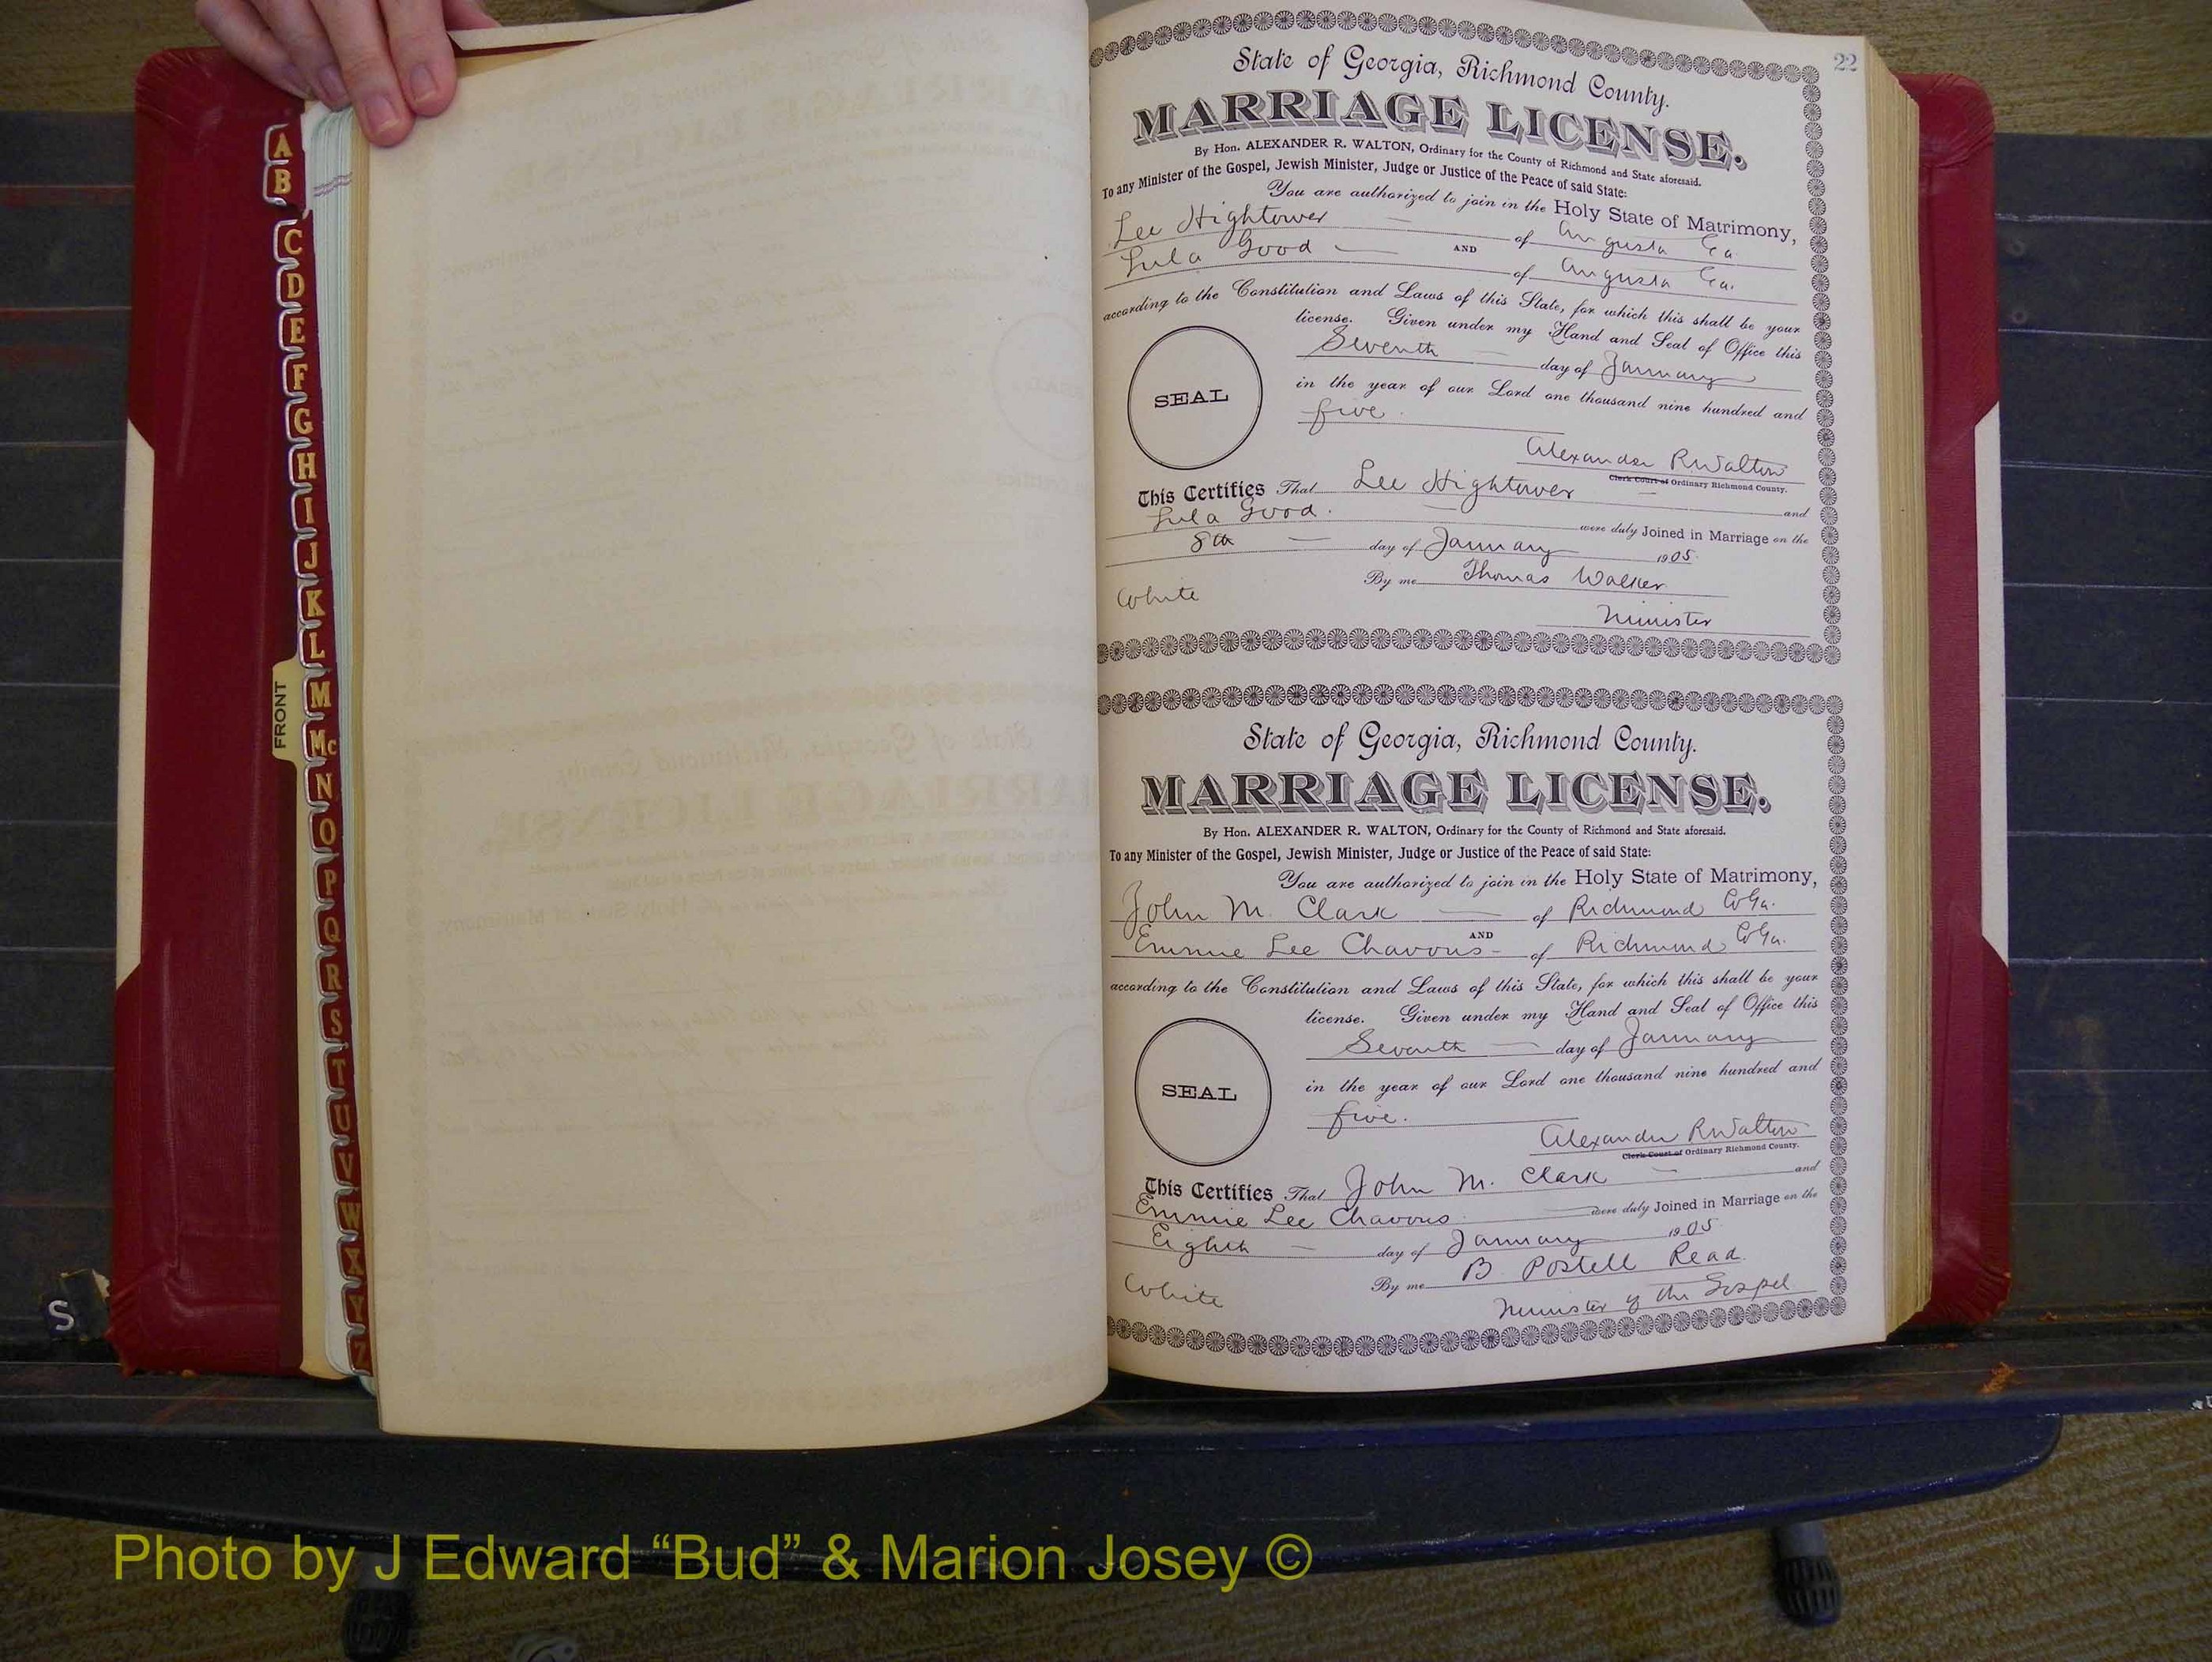 A
B
C
D
E
F
G
H
I
J
K
L
M
Mc
N
O
P
Q
R
S
T
U
V
W
X
Y
Z
FRONT
S
22
State of Georgia, Richmond County.
MARRIAGE LICENSE.
By Hon. ALEXANDER R. WALTON, Ordinary for the County of Richmond and State aforesaid.
To any Minister of the Gospel, Jewish Minister, Judge or Justice of the Peace of said State:
You are authorized to join in the Holy State of Matrimony,
Lee Hightower of Augusta Ga
AND
Lula Good of Augusta Ga.
according to the Constitution and Laws of this State, for which this shall be your
license. Given under my Hand and Seal of Office this
Seventh day of January
in the year of our Lord one thousand nine hundred and
five.
SEAL
Alexander R Walton
Clerk Court of Ordinary Richmond County.
This Certifies That Lee Hightower and
Lula Good. were duly Joined in Marriage on the
8th day of January 1905
By me Thomas Walker
White
Minister
State of Georgia, Richmond County.
MARRIAGE LICENSE.
By Hon. ALEXANDER R. WALTON, Ordinary for the County of Richmond and State aforesaid.
To any Minister of the Gospel, Jewish Minister, Judge or Justice of the Peace of said State:
You are authorized to join in the Holy State of Matrimony,
John M. Clark of Richmond Co Ga.
AND
Emmie Lee Chavous of Richmond Co Ga.
according to the Constitution and Laws of this State, for which this shall be your
license. Given under my Hand and Seal of Office this
Seventh day of January
in the year of our Lord one thousand nine hundred and
five.
SEAL
Alexander R Walton
Clerk Court of Ordinary Richmond County.
This Certifies That John M. Clark and
Emmie Lee Chavous were duly Joined in Marriage on the
Eighth day of January 1905
By me B Postell Read.
White
Minister of the Gospel
Photo by J Edward “Bud” & Marion Josey ©